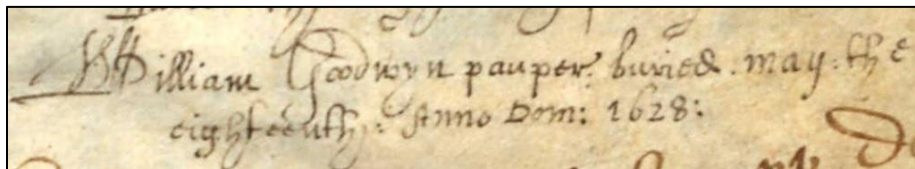 William Goodwyn pauper: buried. may: the
eighteenth: Anno Dom: 1628: